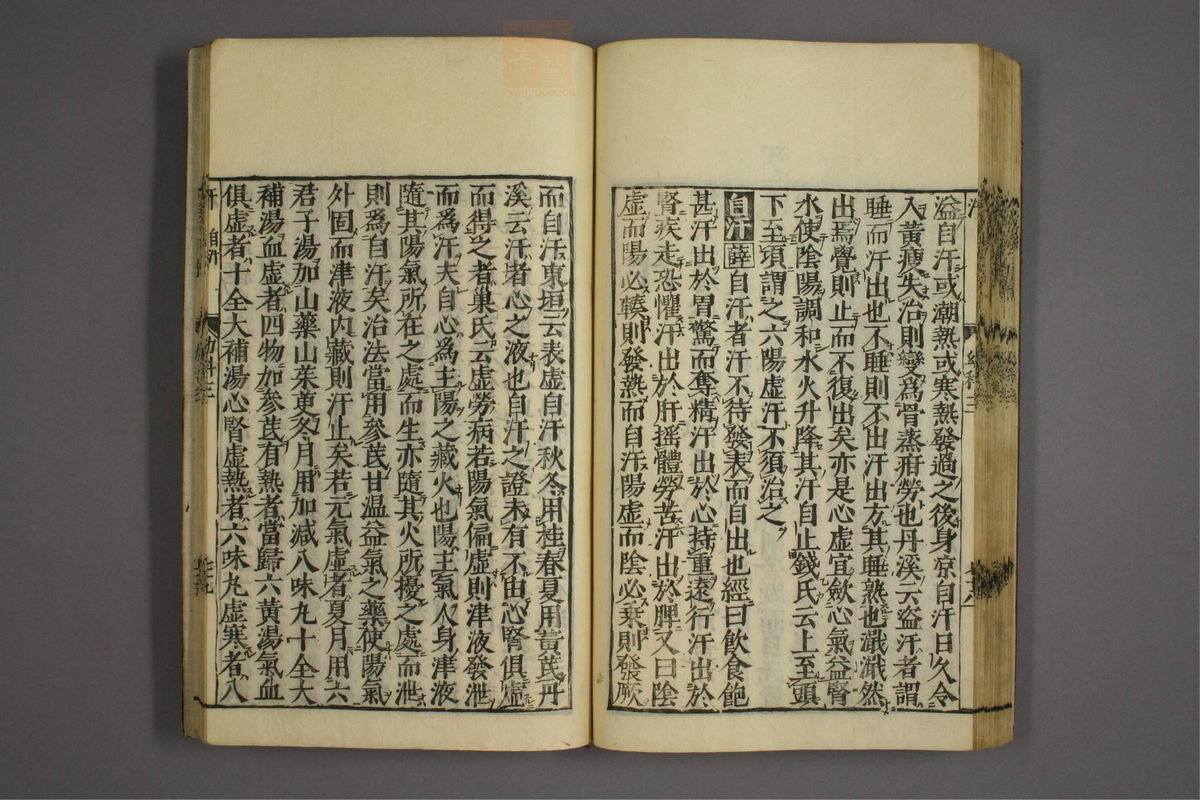 溢自汗或潮熱或寒熱發過之後身凉自汗日久令
人黃瘦失治則變爲骨蒸疳勞也丹溪云盜汗者謂
睡而汗出也不睡則不出汗出方其睡熟也濈濈然
出焉覺則止而不復出矣亦是心虛宜斂心氣益腎
水使陰陽調和水火升降其汗自止錢氏云上至頭
下至項謂之六陽虛汗不須治之
自汗 薛 自汗者汗不待發表而自出也經曰飲食飽
甚汗出於胃驚而奪精汗出於心持重遠行汗出於
腎疾走恐懼汗出於肝搖體勞苦汗出於脾又曰陰
虛而陽必輳則發熱而自汗陽虛而陰必乘則發厥
而自汗東垣云表虛自汗秋冬用桂春夏用黃芪丹
溪云汗者心之液也自汗之證未有不由心腎俱虛
而得之者巢氏云虛勞病若陽氣偏虛則津液發泄
而爲汗夫自心爲主陽之藏火也陽主氣人身津液
隨其陽氣所在之處而生亦隨其火所擾之處而泄
則爲自汗矣治法當用參芪甘温益氣之藥使陽氣
外固而津液內藏則汗止矣若元氣虛者夏月用六
君子湯加山藥山茱萸冬月用加減八味丸十全大
補湯血虛者四物加參芪有熱者當歸六黃湯氣血
俱虛者十全大補湯心腎虛熱者六味丸虛寒者八
汗 自汗